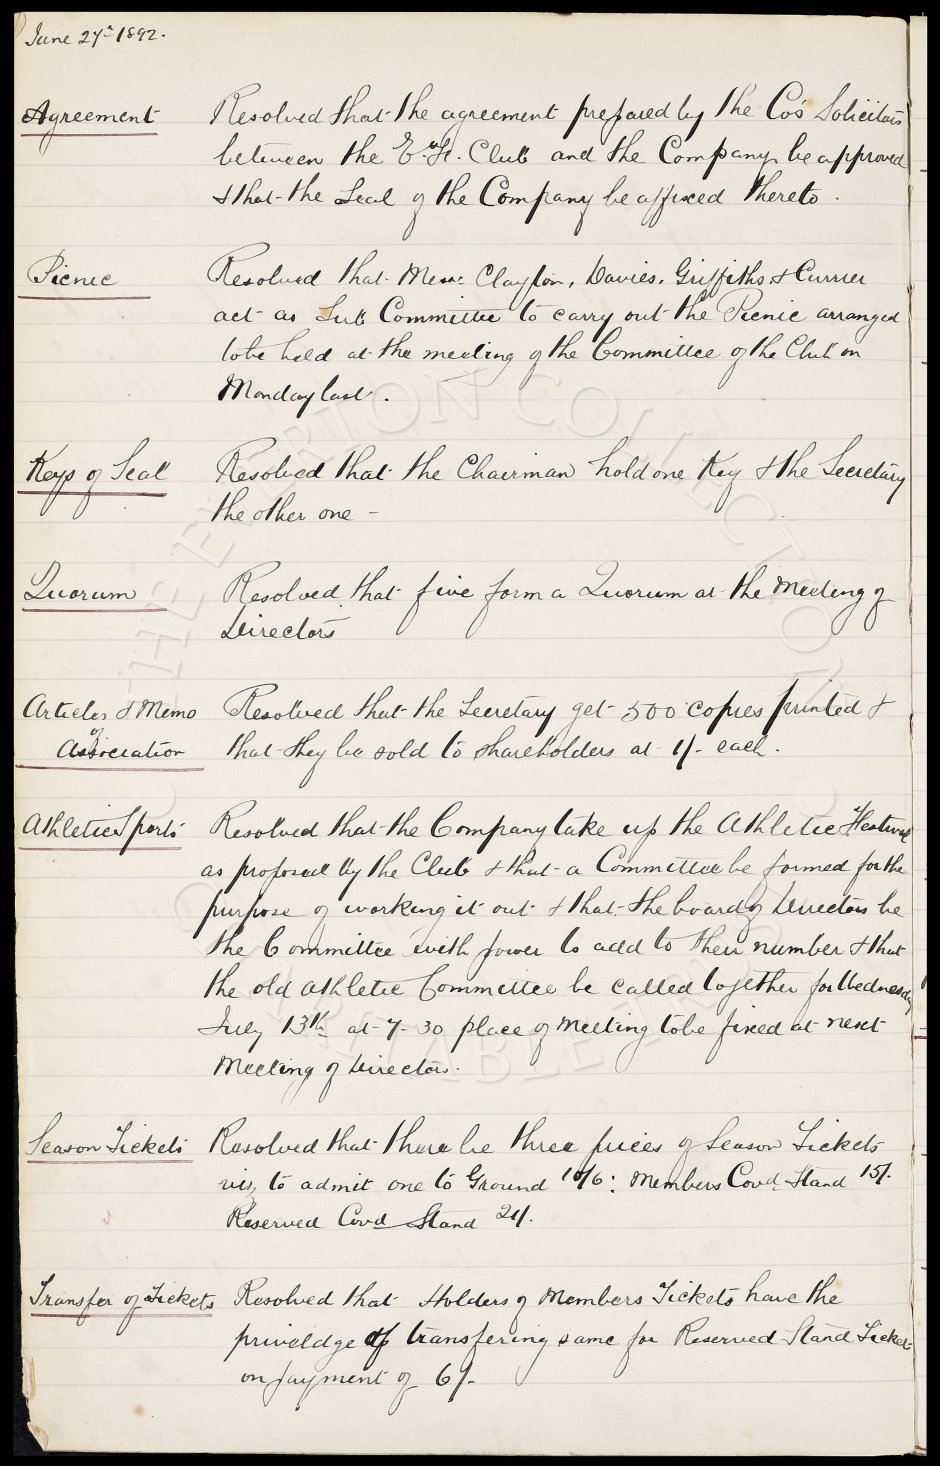 June 27th 1892.
Agreement Resolved that the agreement prepared by the Co's Solicitors
between the E. F. Club and the Company be approved
& that the Seal of the Company be affixed thereto.
Picnic Resolved that Messrs Clayton, Davies, Griffiths & Currier
act as Sub Committee to carry out the Picnic arranged
to be held at the meeting of the Committee of the Club on
Monday last.
Keys of Seal Resolved that the Chairman hold one Key & the Secretary
the other one -
Quorum Resolved that five form a Quorum at the Meeting of
Directors
Articles & Memo Resolved that the Secretary get 500 copies printed &
of
Association that they be sold to shareholders at 1/- each.
Athletic Sports Resolved that the Company take up the Athletic Festival
as proposed by the Club & that a Committee be formed for the
purpose of working it out & that the board of Directors be
the Committee with power to add to their number & that
the old Athletic Committee be called together for Wednesday
July 13th at 7-30 place of Meeting to be fixed at next
Meeting of Directors.
Season Tickets Resolved that there be three prices of Season Tickets
viz, to admit one to Ground 10/6: Members Covd Stand 15/-
Reserved Covd Stand 21/-
Transfer of Tickets Resolved that Holders of Members Tickets have the
priveldge of transfering same for Reserved Stand Tickets
on payment of 6/-
THE EVERTON COLLECTION
CHARITABLE TRUST